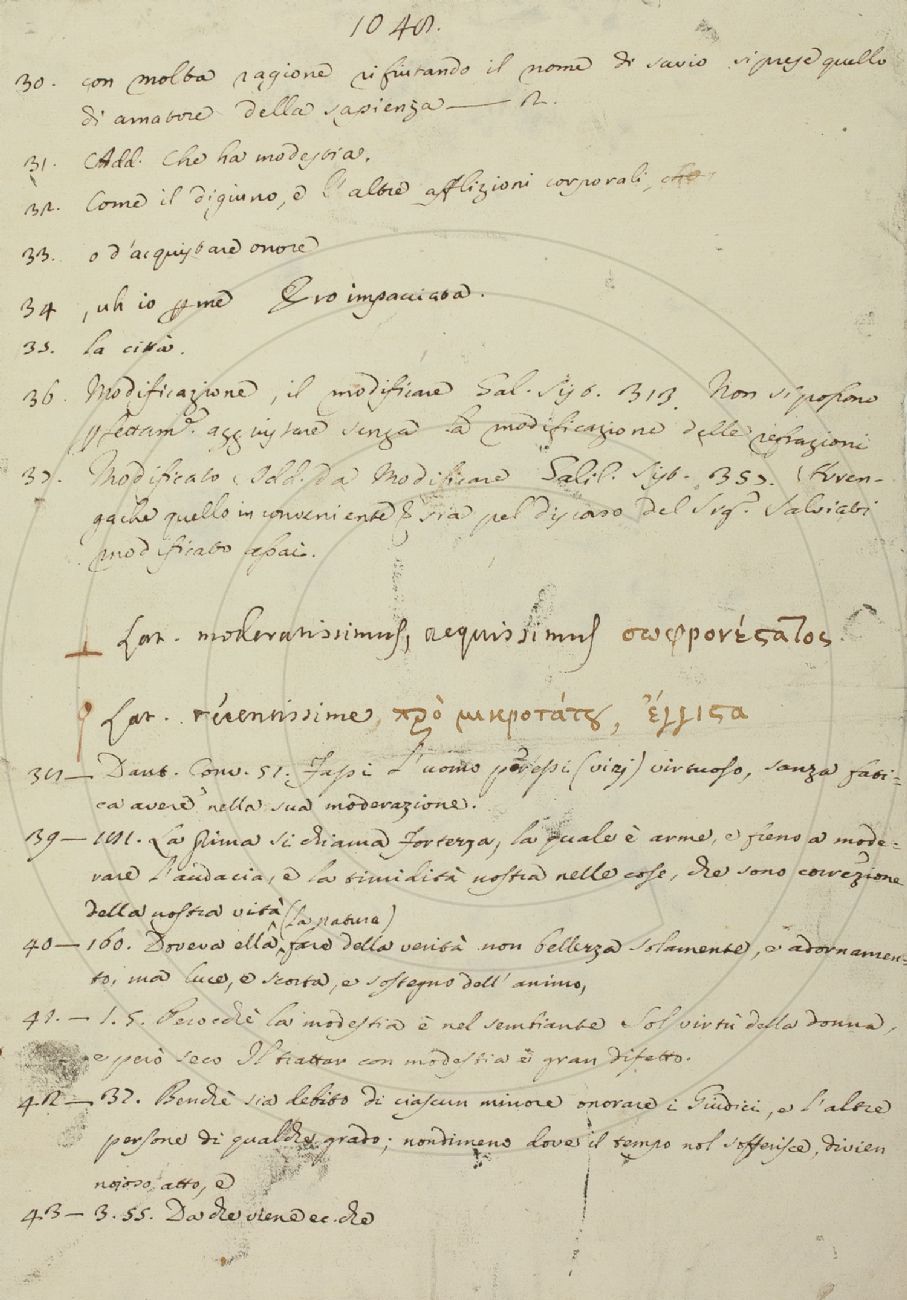 1048.
30. con molta ragione rifiutando il nome di savio si prese quello
di amatore della sapienza — 2.
31. Add. Che ha modestia.
32. Come il digiuno, e l'altre afflizioni corporali,
33. o d'acquistare onore
34 , uh io me impacciata.
35. la città.
36. Modificazione, il modificare Gal. Sist. 313. Non si possono
aggiustare senza la modificazione delle refrazioni
37. Modificato Add. Da Modificare Galil. Sist. 355. Avven-
gachè quello inconveniente sia pel discorso del Sig.r Salviati
modificato assai.
Lat. moderatissimus, aequissimus σωφρονέστατος.
Lat. reverentissime, πρὸ μικροτάτου, ἔγγιστα
38 — Dant. Conv. 51. Fassi l'uomo (vizj) virtuoso, sanza fati-
ca avere nella sua moderazione.
39 — 181. La prima si chiama Fortezza, la quale è arme, e freno a mode-
rare l'audacia, e la timidità nostra nelle cose, che sono correzione
della nostra vita
(la natura)
40 — 160. Doveva ella fare della verità non bellezza solamente, e adornamen-
to, ma luce, e scorta, e sostegno dell'animo,
41. — 1. 5. Perocchè la modestia è nel sembiante Sol virtù della donna,
e però seco Il trattar con modestia è gran difetto.
42 — 37. Benchè sia debito di ciascun minore onorare i Giudici, e l'altre
persone di qualche grado; nondimeno dove il tempo nol sofferisce, divien
noioso atto, e
43 — 3. 55. Da che viene ec. che